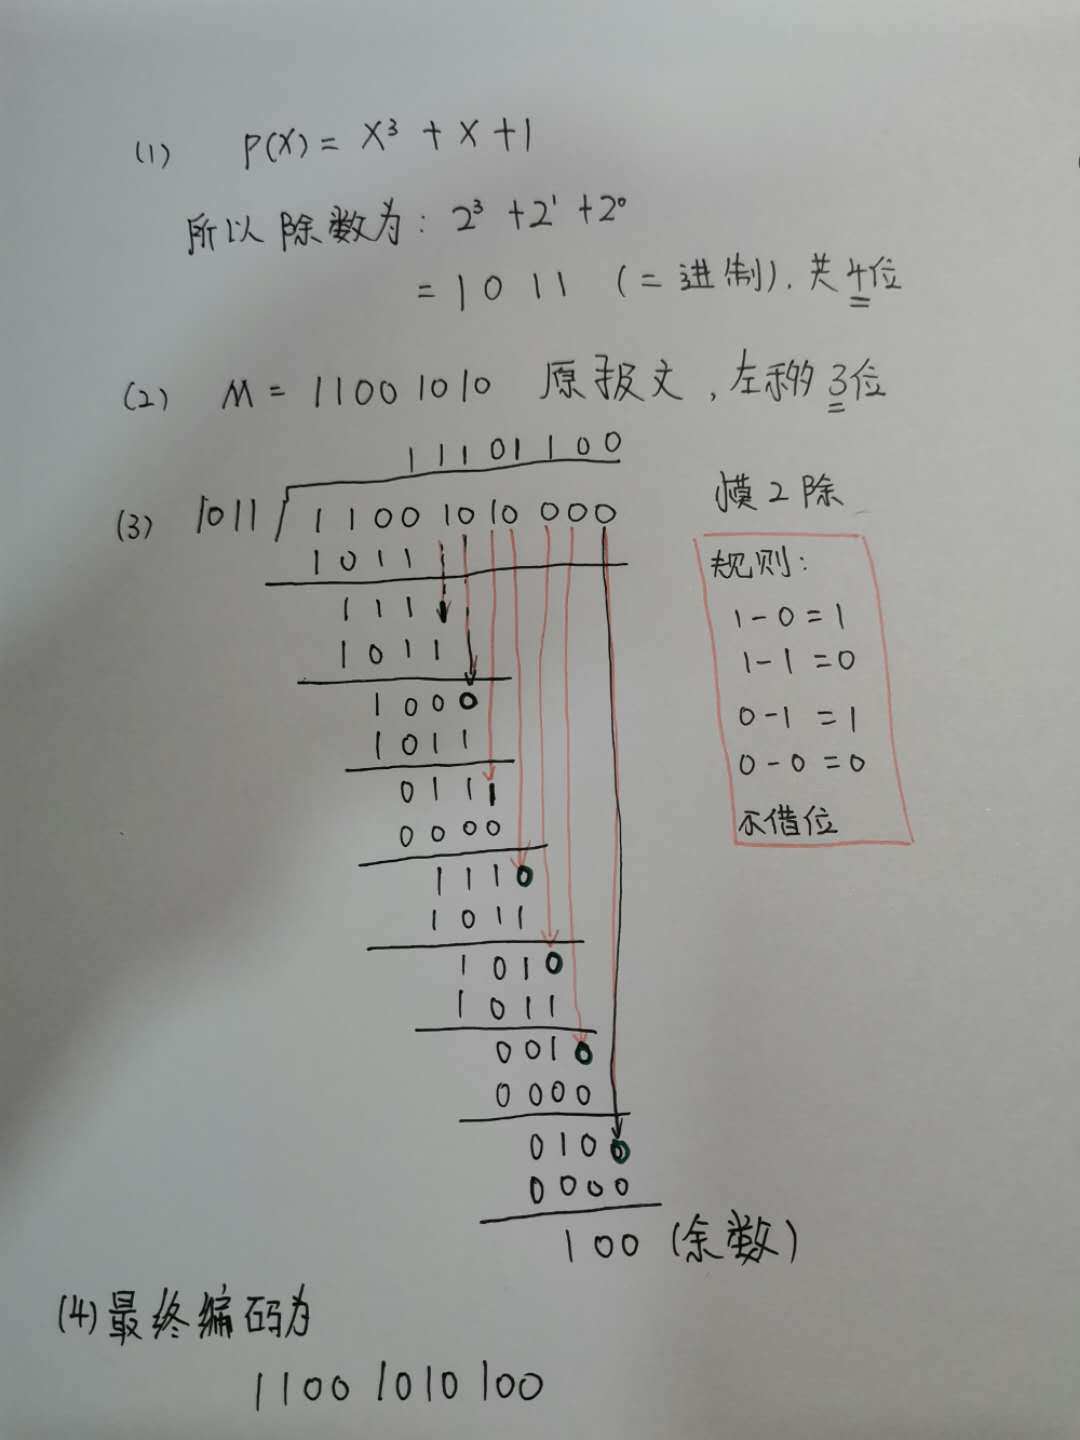 (1) P(X) = X³ + X + 1
所以除数为: 2³ + 2¹ + 2⁰
= 1011 (二进制). 共4位
(2) M = 11001010 原报文, 左移3位
11101100
(3) 1011 11001010000
1011
1111
1011
1000
1011
0111
0000
1110
1011
1010
1011
0010
0000
0100
0000
100 (余数)
模2除
规则:
1-0=1
1-1=0
0-1=1
0-0=0
不借位
(4) 最终编码为
11001010100